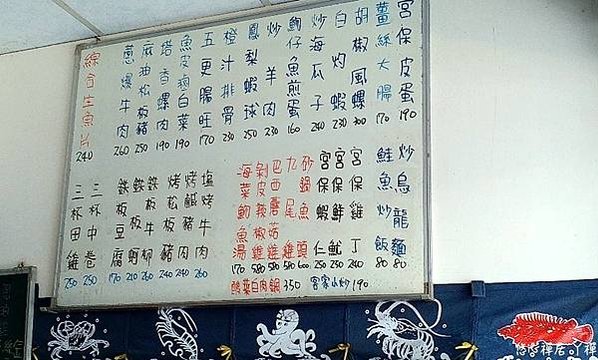 宮保皮蛋 190
薑絲大腸 170
胡椒風螺 300
白灼蝦 230
炒海瓜子 240
鮑仔魚煎蛋 160
炒羊肉 230
鳳梨蝦球 250
橙汁排骨 230
五更腸旺 170
魚皮滷白菜 190
塔香螺肉 190
麻油松板豬 250
蔥爆牛肉 260
綜合生魚片 240
炒烏龍麵 80
鮭魚炒飯 80
宮保雞丁 240
宮保鮮魷 250
宮保蝦仁 250
砂鍋魚頭 600
九尾雞 580
巴西蘑菇雞 580
剝皮辣椒雞 580
海菜魩魚湯 170
塩烤牛肉 260
烤鹹豬肉 240
烤松板豬 240
鐵板牛柳 260
鐵板蚵 210
鐵板豆腐 170
三杯中卷 250
三杯田雞 250
酸菜白肉鍋 350
客家小炒 190